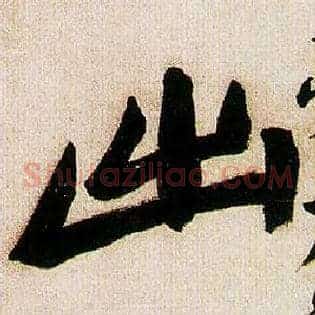 出
Shufaziliao.COM